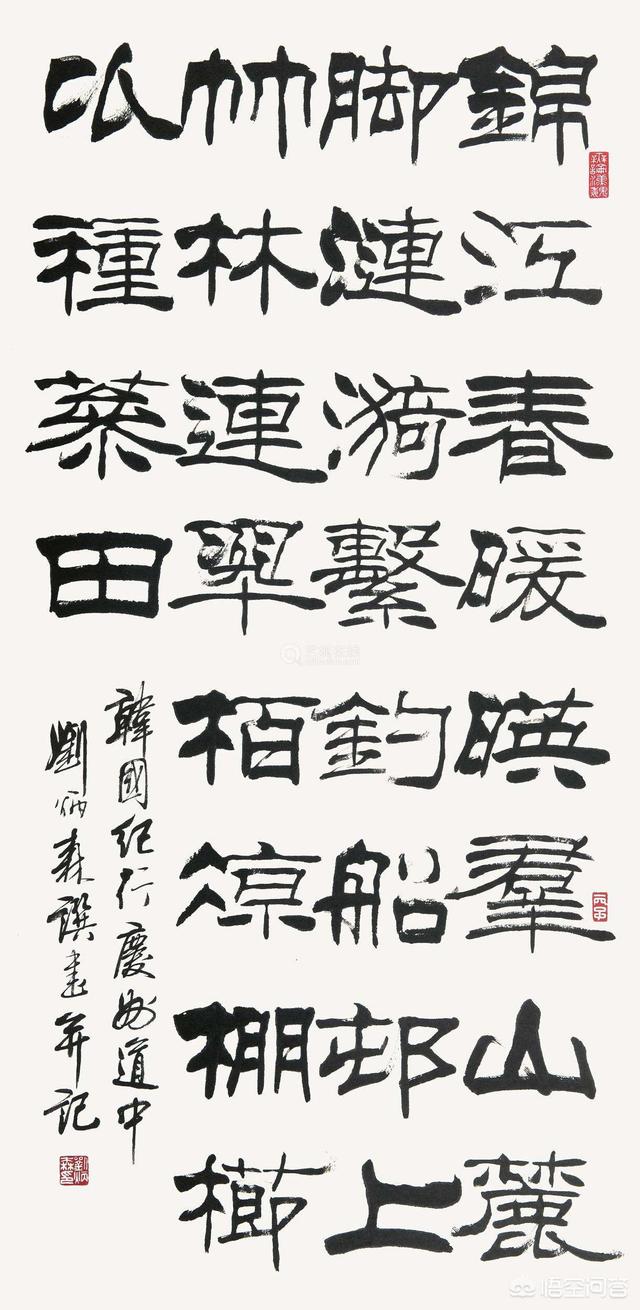 錦江春暖暎羣山麓
脚漣漪繫釣船邨上
竹林連翠栢凉棚櫛
以種菜田
韓國紀行慶州道中
劉炳森譔書并記
悟空问答